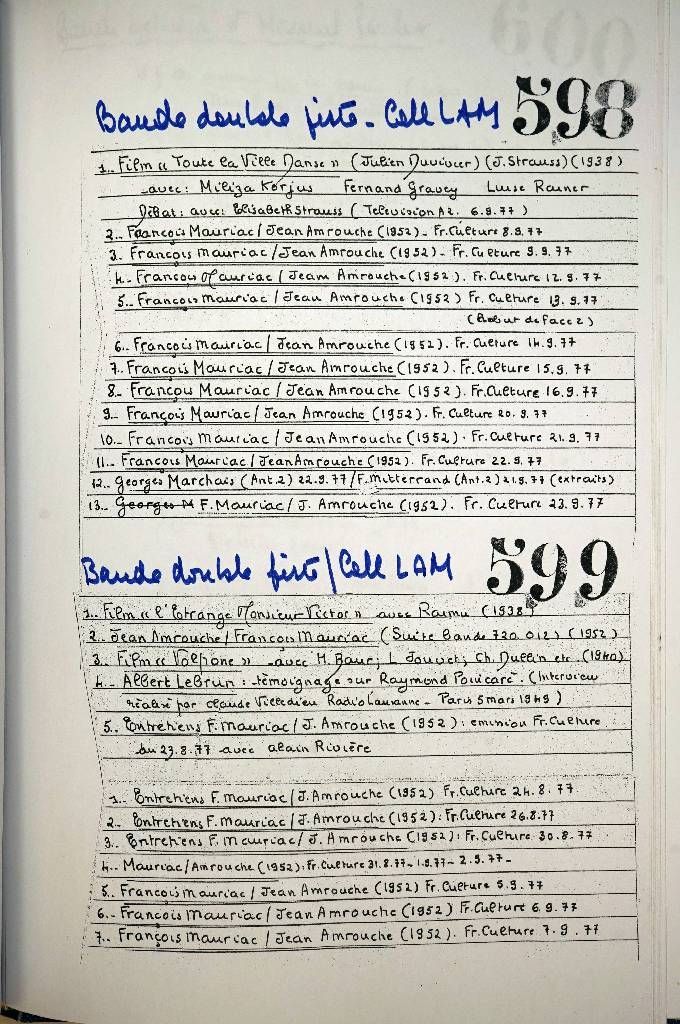 Bande double piste - Coll LAM 598
1.. Film « Toute la Ville Danse » (Julien Duvivier) (J. Strauss) (1938)
avec: Miliza Korjus Fernand Gravey Luise Rainer
Débat: avec: Elisabeth Strauss (Television A2. 6.9.77)
2.. François Mauriac / Jean Amrouche (1952) - Fr. Culture 8.9.77
3. François Mauriac / Jean Amrouche (1952) - Fr. Culture 9.9.77
4.. François Mauriac / Jean Amrouche (1952). Fr. Culture 12.9.77
5.. François Mauriac / Jean Amrouche (1952) Fr. Culture 13.9.77
(Début de face 2)
6.. François Mauriac / Jean Amrouche (1952). Fr. Culture 14.9.77
7.. François Mauriac / Jean Amrouche (1952). Fr. Culture 15.9.77
8.. François Mauriac / Jean Amrouche (1952). Fr. Culture 16.9.77
9.. François Mauriac / Jean Amrouche (1952). Fr. Culture 20.9.77
10.. François Mauriac / Jean Amrouche (1952). Fr. Culture 21.9.77
11.. François Mauriac / Jean Amrouche (1952). Fr. Culture 22.9.77
12.. Georges Marchais (Ant.2) 22.9.77 / F. Mitterrand (Ant.2) 21.9.77 (extraits)
13.. Georges M F. Mauriac / J. Amrouche (1952). Fr. Culture 23.9.77
Bande double piste / Coll LAM 599
1.. Film « l'Etrange Monsieur Victor » avec Raimu (1938)
2.. Jean Amrouche / François Mauriac (Suite bande 720 012) (1952)
3.. Film « Volpone » avec H. Baur; L Jouvet; Ch. Dullin etc. (1940)
4.. Albert LeBrun: témoignage sur Raymond Poincaré. (Interview
réalisé par Claude Villedieu Radio Lausanne - Paris 5 mars 1949)
5.. Entretiens F. Mauriac / J. Amrouche (1952): emission Fr. Culture
du 23.8.77 avec alain Rivière
1.. Entretiens F. Mauriac / J. Amrouche (1952) Fr. Culture 24.8.77
2.. Entretiens F. Mauriac / J. Amrouche (1952): Fr. Culture 26.8.77
3.. Entretiens F. Mauriac / J. Amrouche (1952): Fr. Culture 30.8.77
4.. Mauriac / Amrouche (1952): Fr. Culture 31.8.77 - 1.9.77 - 2.9.77 -
5.. François Mauriac / Jean Amrouche (1952) Fr. Culture 5.9.77
6.. François Mauriac / Jean Amrouche (1952) Fr. Culture 6.9.77
7.. François Mauriac / Jean Amrouche (1952). Fr. Culture 7.9.77